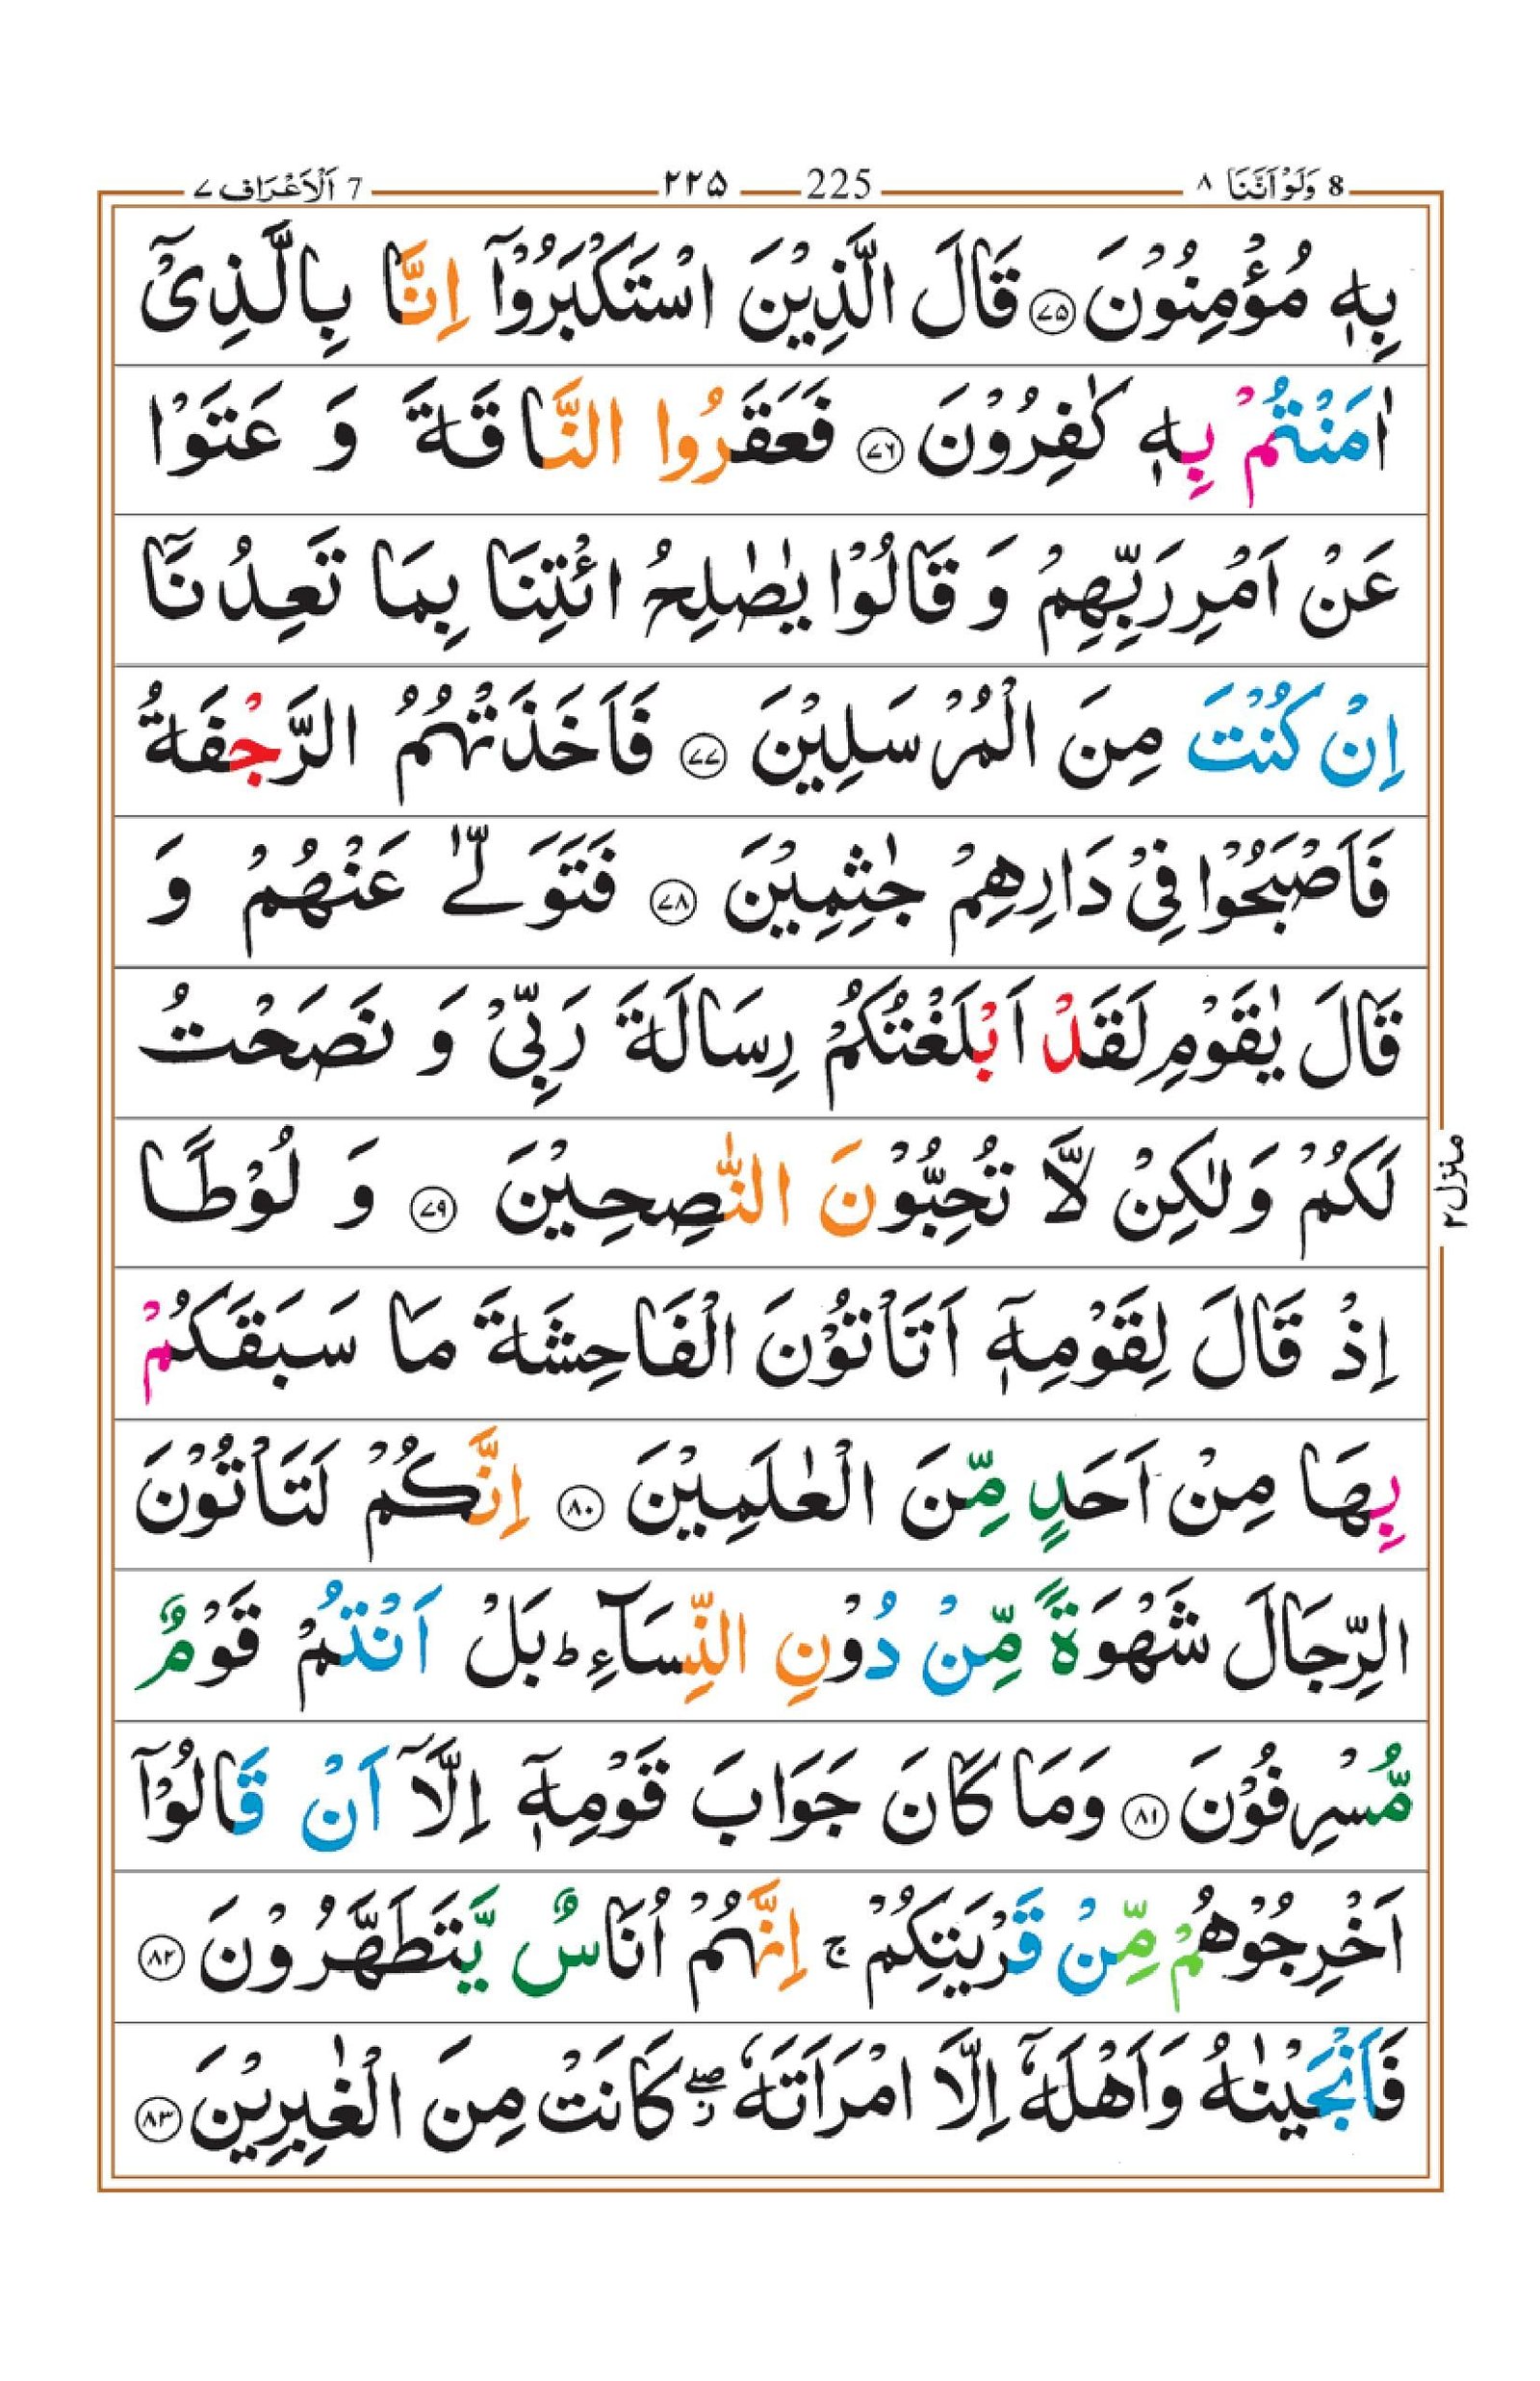 8 وَلَوْ اَنَّنَا ۸ 225 ۲۲۵ 7 اَلْاَعْرَاف ۷
بِهٖ مُؤْمِنُوْنَ ۷۵ قَالَ الَّذِيْنَ اسْتَكْبَرُوْۤا اِنَّا بِالَّذِیْۤ
اٰمَنْتُمْ بِهٖ كٰفِرُوْنَ ۷۶ فَعَقَرُوا النَّاقَةَ وَ عَتَوْا
عَنْ اَمْرِ رَبِّهِمْ وَ قَالُوْا يٰصٰلِحُ ائْتِنَا بِمَا تَعِدُنَاۤ
اِنْ كُنْتَ مِنَ الْمُرْسَلِيْنَ ۷۷ فَاَخَذَتْهُمُ الرَّجْفَةُ
فَاَصْبَحُوْا فِیْ دَارِهِمْ جٰثِمِيْنَ ۷۸ فَتَوَلّٰى عَنْهُمْ وَ
قَالَ يٰقَوْمِ لَقَدْ اَبْلَغْتُكُمْ رِسَالَةَ رَبِّیْ وَ نَصَحْتُ
لَكُمْ وَلٰكِنْ لَّا تُحِبُّوْنَ النّٰصِحِيْنَ ۷۹ وَ لُوْطًا
اِذْ قَالَ لِقَوْمِهٖۤ اَتَاْتُوْنَ الْفَاحِشَةَ مَا سَبَقَكُمْ
بِهَا مِنْ اَحَدٍ مِّنَ الْعٰلَمِيْنَ ۸۰ اِنَّكُمْ لَتَاْتُوْنَ
الرِّجَالَ شَهْوَةً مِّنْ دُوْنِ النِّسَآءِ ؕ بَلْ اَنْتُمْ قَوْمٌ
مُّسْرِفُوْنَ ۸۱ وَمَا كَانَ جَوَابَ قَوْمِهٖۤ اِلَّاۤ اَنْ قَالُوْۤا
اَخْرِجُوْهُمْ مِّنْ قَرْيَتِكُمْ ۚ اِنَّهُمْ اُنَاسٌ يَّتَطَهَّرُوْنَ ۸۲
فَاَنْجَيْنٰهُ وَاَهْلَهٗۤ اِلَّا امْرَاَتَهٗ ۖز كَانَتْ مِنَ الْغٰبِرِيْنَ ۸۳
منزل ۲